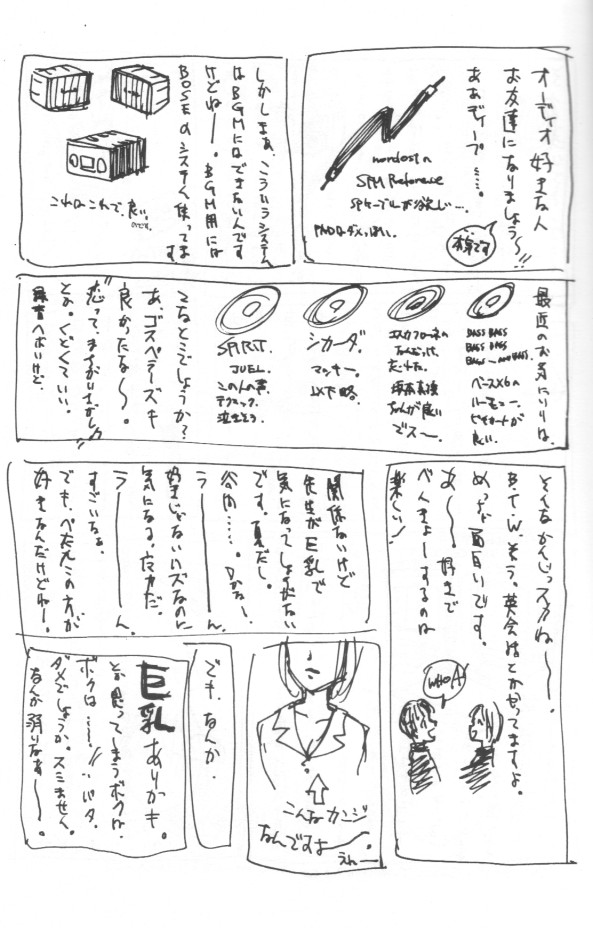 オーディオ好きな人
お友達になりましょう〜!!
ああディープ……。
nordostの
SPM Reference
SPケーブルが欲し…。
本気です
しかしまぁ、こういうシステム
はBGMにはできないんです
けどね〜。BGM用には
BOSEのシステム使ってま
す
これはこれで、良い。
のです。
最近のお気にいりは、
BASS BASS
BASS BASS
ベース×6の
ハーモニー。
良い。
エスカフローネの
坂本真綾
ちゃんが良い
でスー。
シカーダ。
マッキー。
以下略。
SPIRIT.
JUEL.
この人の声、
テクニック、
泣きそう。
こなとこでしょうか?
あ、ゴスペラーズも
良かったな〜。
とか。くどくていい。
録音へボいけど。
そんなかんじっスかね〜。
B.T.W.そう。英会話とかやってますよ。
めっちゃ面白いです。
あ〜〜。好きで
べんきょーするのは
楽しい!
WHOA!
関係ないけど
先生が巨乳で
気になってしょうがない
です。夏だし。
谷間……。Dかなー。
うーーーーーん。
好きじゃないハズなのに
気になる。なぜだ。
うーーーーーん。
すごいなぁ。
でも、ぺたんこの方が
好きなんだけどねー。
こんなカンジ
なんですよー。
えんー
でも、なんか、
巨乳ありがも。
とか思ってしまうボクは、
ボクは……!! バタ。
ダメでしょうか。スミません。
なんか溺りなぁ〜。